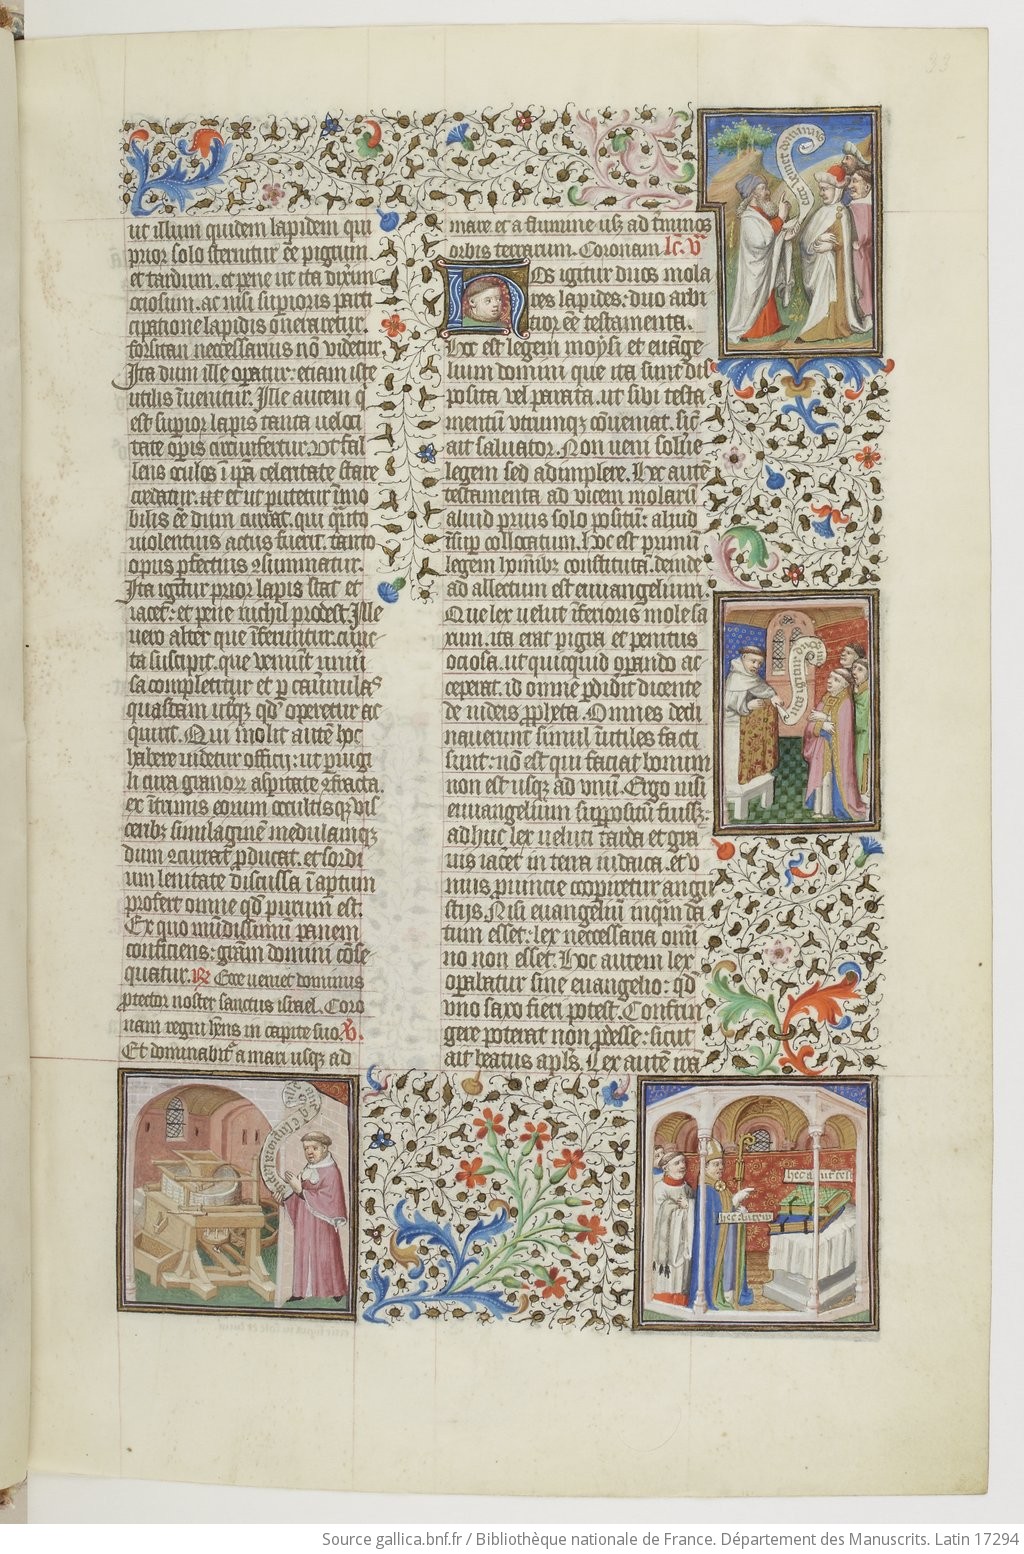 33
ut illum quidem lapidem qui
prior solo sternitur eē pigrum
et tardum. et pene ut ita dixim
ociosum. ac nisi supioris parti
cipatione lapidis oneraretur.
forsitan necessarius nō videtur
Ita dum ille opatur: etiam iste
utilis īuenitur. Ille autem q
est supior lapis tanta veloci
tate opis circūfertur. Vt fal
lens oculos ī ipa celeritate stare
credatur. et ut putetur īmo
bilis eē dum currat. qui qūto
violentius actus fuerit. tanto
opus pfectius 2summatur.
Ita igitur prior lapis stat et
iacet: et pene nichil prodest. Ille
uero alter que īferuntur cunc
ta suscipit. que veniūt
sa completitur et p
quasdam utq qd operetur ac
quirit. Qui molit autē hoc
habere uidetur officij: ut prugi
li cura granor aspitate 2fracta.
ex īternis eorum occultisq vis
cerib similaginē medulamq
dum 2curat pducat. et sordi
um lenitate discussa ī aptum
profert omne qd purum est.
Ex quo mūdissimum panem
conficiens: gram domini cōse
quatur. R Ecce veniet dominus
ptector noster sanctus israel. Coro
nam regni hēns in capite suo. V.
Et dominabit a mari usq ad
mare et a flumine usq ad tminos
orbis terrarum. Coronam lc. v
HOs igitur duos mola
res lapides: duo arbi
tror eē testamenta.
Hoc est legem moysi et euāge
lium domini que ita sunt dis
posita vel parata. ut sibi testa
mentū utrumq cōueniat. sic
ait saluator. Non veni soluē
legem sed adimplere. Hec autē
testamenta ad vicem molarū
aliud prius solo positū: aliud
īsup collocatum. hoc est primū
legem hoīnib constitutā. deinde
ad allectum est euuangelium.
Que lex velut īferioris mole sa
xum. ita erat pigra et penitus
ociosa. ut quicquid opando ac
ceperat. id omne pdidit dicente
de iudeis ppheta. Omnes decli
nauerunt simul īutiles facti
sunt: nō est qui faciat bonum
non est usq ad unū. Ergo nisi
euuangelium suppositū fuiss
adhuc lex veluti tarda et gra
uis iacet in terra iudaica. et v
nius puincie coopiretur angu
stijs. Nisi euangeliū inqm da
tum esset: lex necessaria omī
no non esset. Hoc autem lex
opabatur sine euangelio: qd
vno saxo fieri potest. Confrin
gere poterat non pdesse: sicut
ait beatus apls. Lex autē ira
ecce veniet dominus
hec autem
hec autem